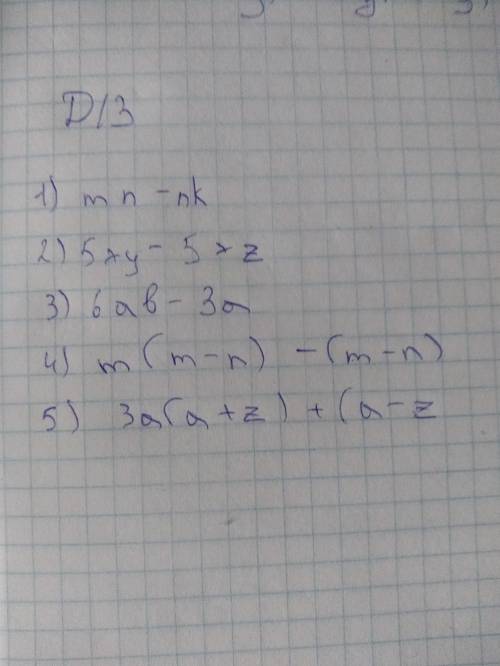 Д/З
1) mn - nk
2) 5xy - 5xz
3) 6ab - 3a
4) m(m-n) - (m-n)
5) 3a(a+z) + (a-z